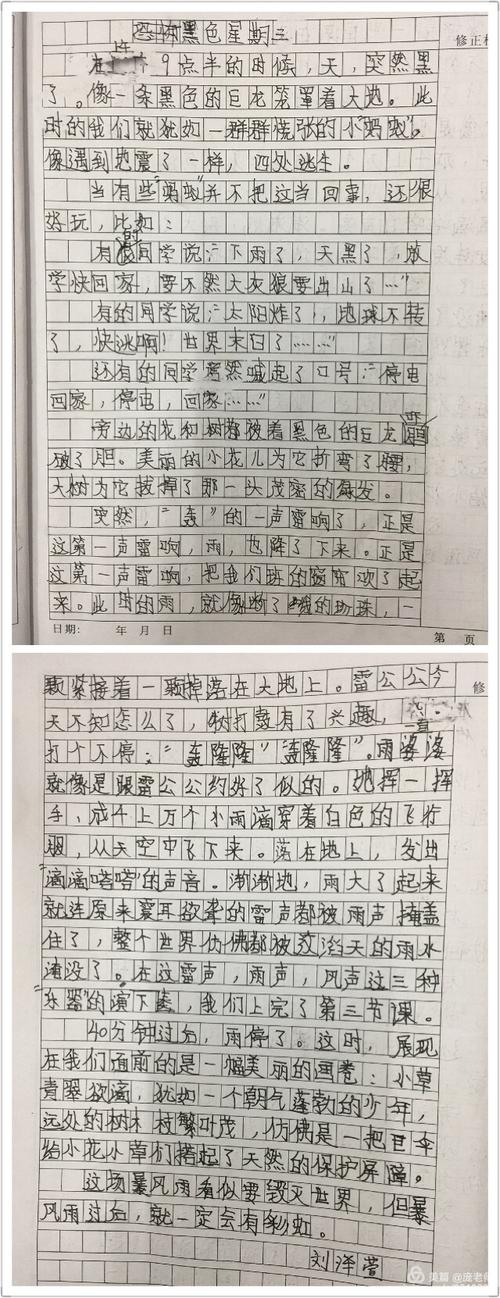 恐怖黑色星期三
修正栏
在上午9点半的时候，天，突然黑
了。像一条黑色的巨龙笼罩着大地。此
时的我们就犹如一群群慌张的小“蚂蚁”。
像遇到地震了一样，四处逃生。
当有些“蚂蚁”并不把这当回事，还很
好玩，比如：
有的同学说：“下雨了，天黑了，放
学快回家，要不然大灰狼要出山了…”
有的同学说：“太阳炸了，地球不转
了，快逃啊！世界末日了……”
还有的同学竟然喊起了口号：“停电
回家，停电，回家……”
旁边的花和树都被着黑色的巨龙吓
破了胆。美丽的小花儿为它折弯了腰，
大树为它拔掉了那一头茂密的绿发。
突然，“轰”的一声雷响了，正是
这第一声雷响，雨，也降了下来。正是
这第一声雷响，把我们班的窗帘吹了起
来。此时的雨，就像断了线的珠，一
日期： 年 月 日
第 页
颗紧接着一颗掉落在大地上。雷公公今
修
天不知怎么了，对打鼓有了兴趣，一直
打个不停：“轰隆隆”“轰隆隆”。雨婆婆
就像是跟雷公公约好了似的。她挥一挥
手，成千上万个小雨滴穿着白色的飞行
服，从天空中飞下来。落在地上，发出
“滴滴嗒嗒”的声音。渐渐地，雨大了起来
就连原来震耳欲聋的雷声都被雨声掩盖
住了，整个世界仿佛都被滔天的雨水
淹没了。在这雷声，雨声，风声这三种
“乐器”的演奏下，我们上完了第三节课。
40分钟过后，雨停了。这时，展现
在我们面前的是一幅美丽的画卷：小草
青翠欲滴，犹如一个朝气蓬勃的少年，
远处的树木枝繁叶茂，仿佛是一把巨伞
给小花小草们搭起了天然的保护屏障。
这场暴风雨看似要毁灭世界，但暴
风雨过后，就一定会有彩虹。
刘泽萱
美篇 @庞老师